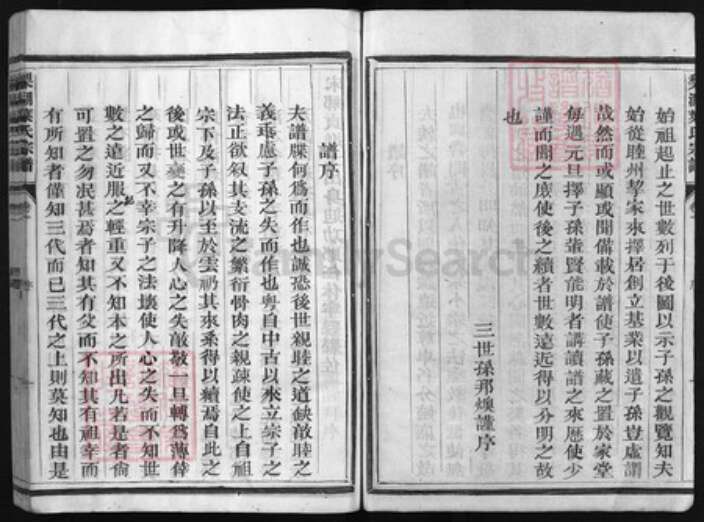 始祖起止之世數列于後圖以示子孫之觀覽知夫
始從睦州挈家來擇居創立基業以遺子孫豈虛謂
哉然而或顯或開備載於譜使子孫藏之置於家堂
每遇元旦擇子孫輩賢能明者講讀譜之來歷使少
謹而聞之庶使後之續者世數遠近得以分明之故
也
三世孫邦煥謹序
譜序
夫譜牒何為而作也誠恐後世親睦之道缺敵睦之
義乖慮子孫之失而作也粵自中古以來立宗子之
法正欲叙其支流之繁衍骨肉之親疎使之上自祖
宗下及子孫以至於雲礽其來柔得以續焉自此之
後或世變之有升降人心之失敵敬一旦轉為薄俸
之歸而又不幸宗子之法壞使人心之失而不知世
數之遠近服之輕重又不知本之所出凡若是者尚
可置之勿泯甚焉者知其有父而不知其有祖幸而
有所知者僅知三代而已三代之上則莫知也由是
FamilySearch